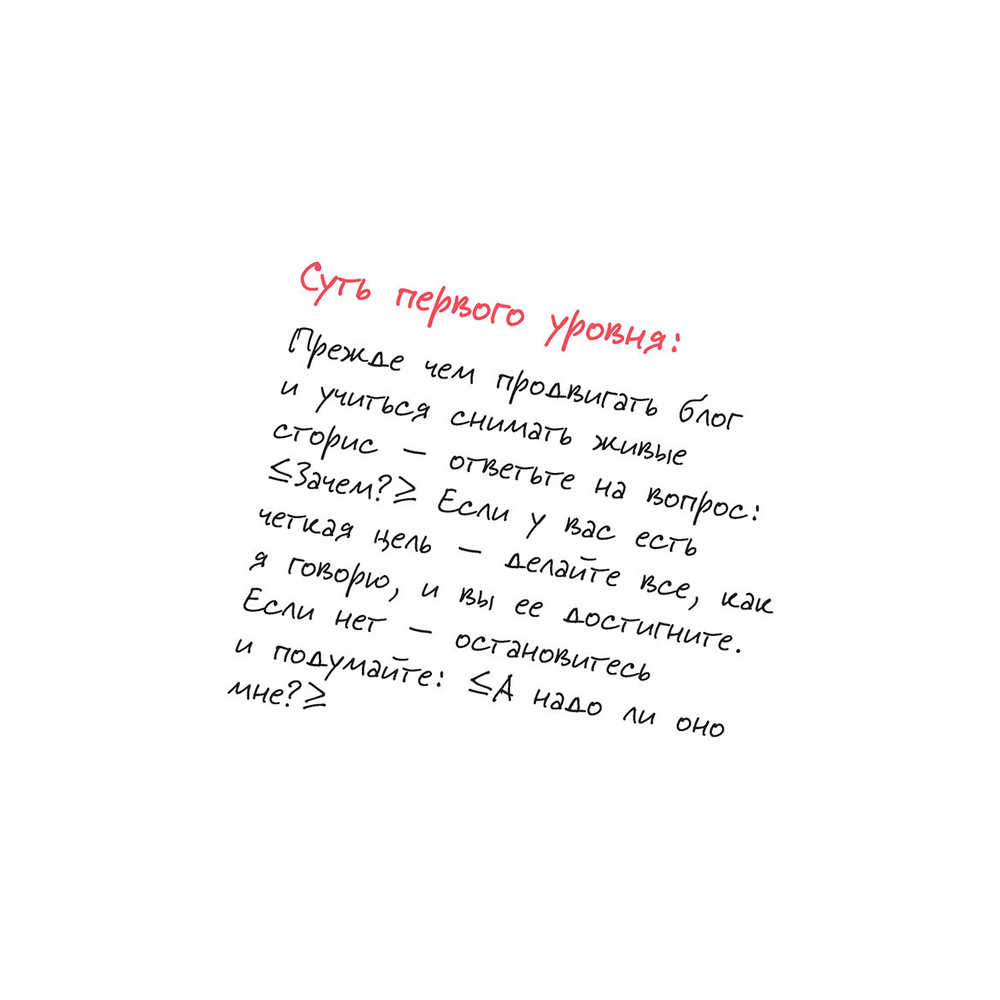 Суть первого уровня:
Прежде чем продвигать блог
и учиться снимать живые
сторис — ответьте на вопрос:
≤Зачем?≥ Если у вас есть
четкая цель — делайте все, как
я говорю, и вы ее достигните.
Если нет — остановитесь
и подумайте: ≤А надо ли оно
мне?≥